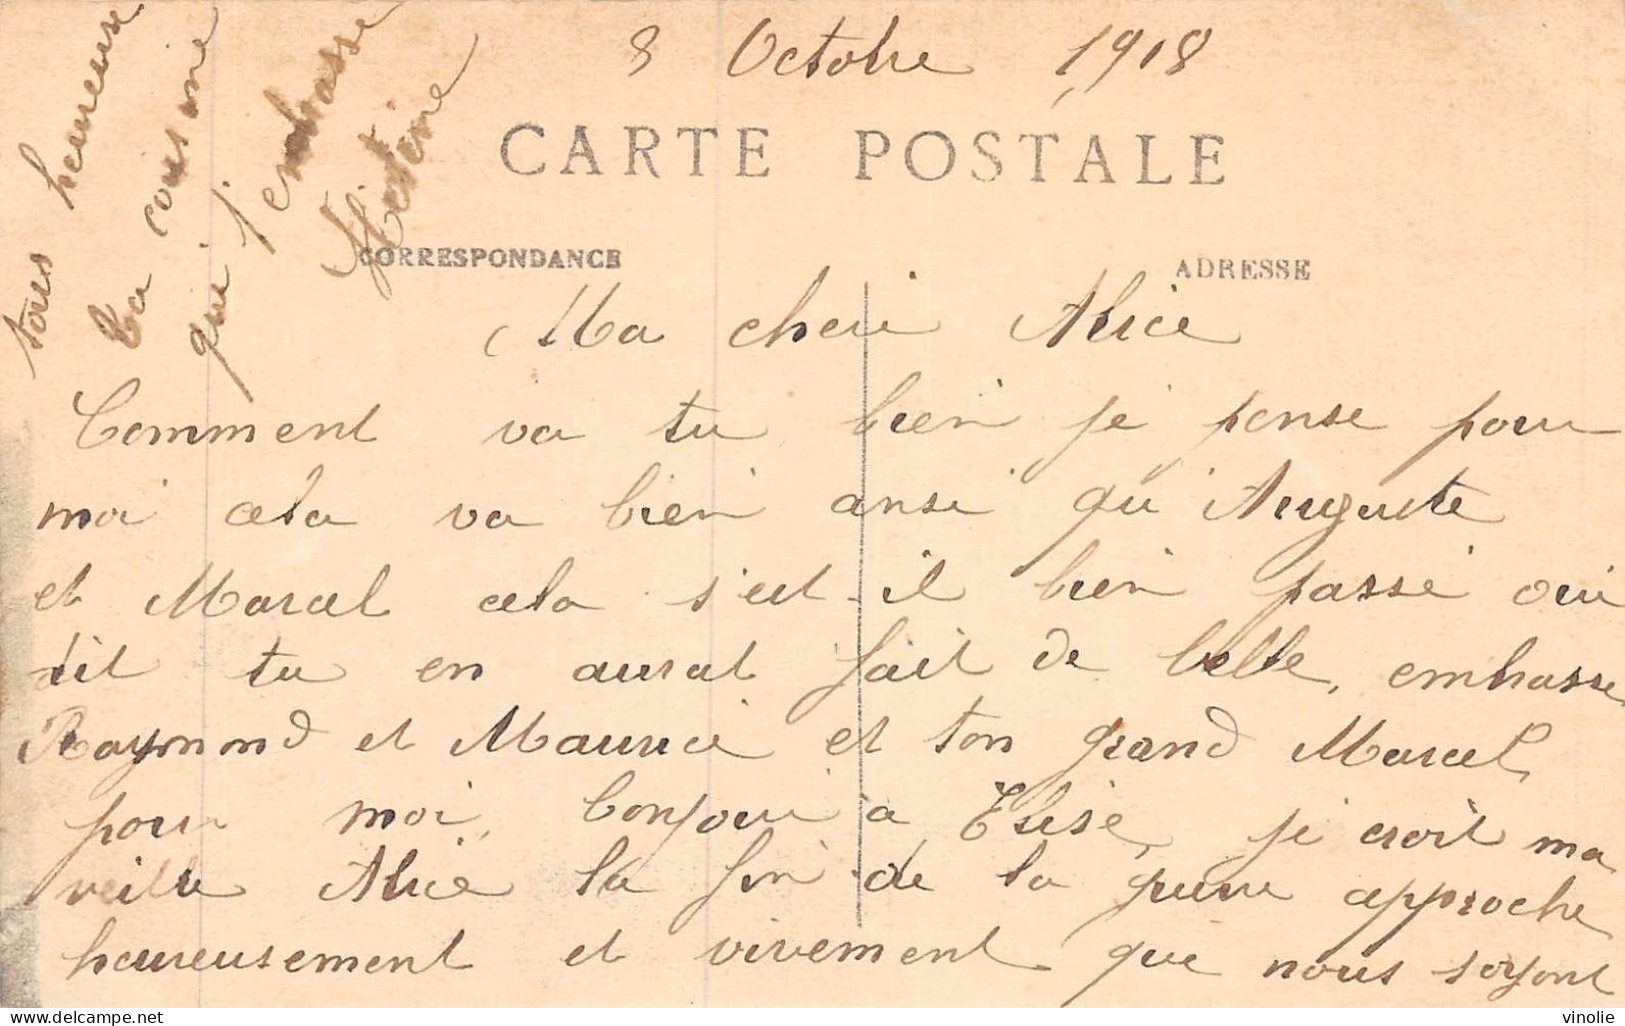 8 Octobre 1918
CARTE POSTALE
CORRESPONDANCE
ADRESSE
Ma cheri Alice
Comment va tu bien je pense pour
moi cela va bien ansi qu'Auguste
et Marcel cela s'est-il bien passé oui
dit tu en aurat fait de belle, embrasse
Raymond et Maurice et ton grand Marcel
pour moi, bonjour à Elise, je croit ma
veille Alice la fin de la guerre approche
heureusement et vivement que nous soyont
tous heureuse
ta cousine
qui t'embrasse
delcampe.net
vinolie